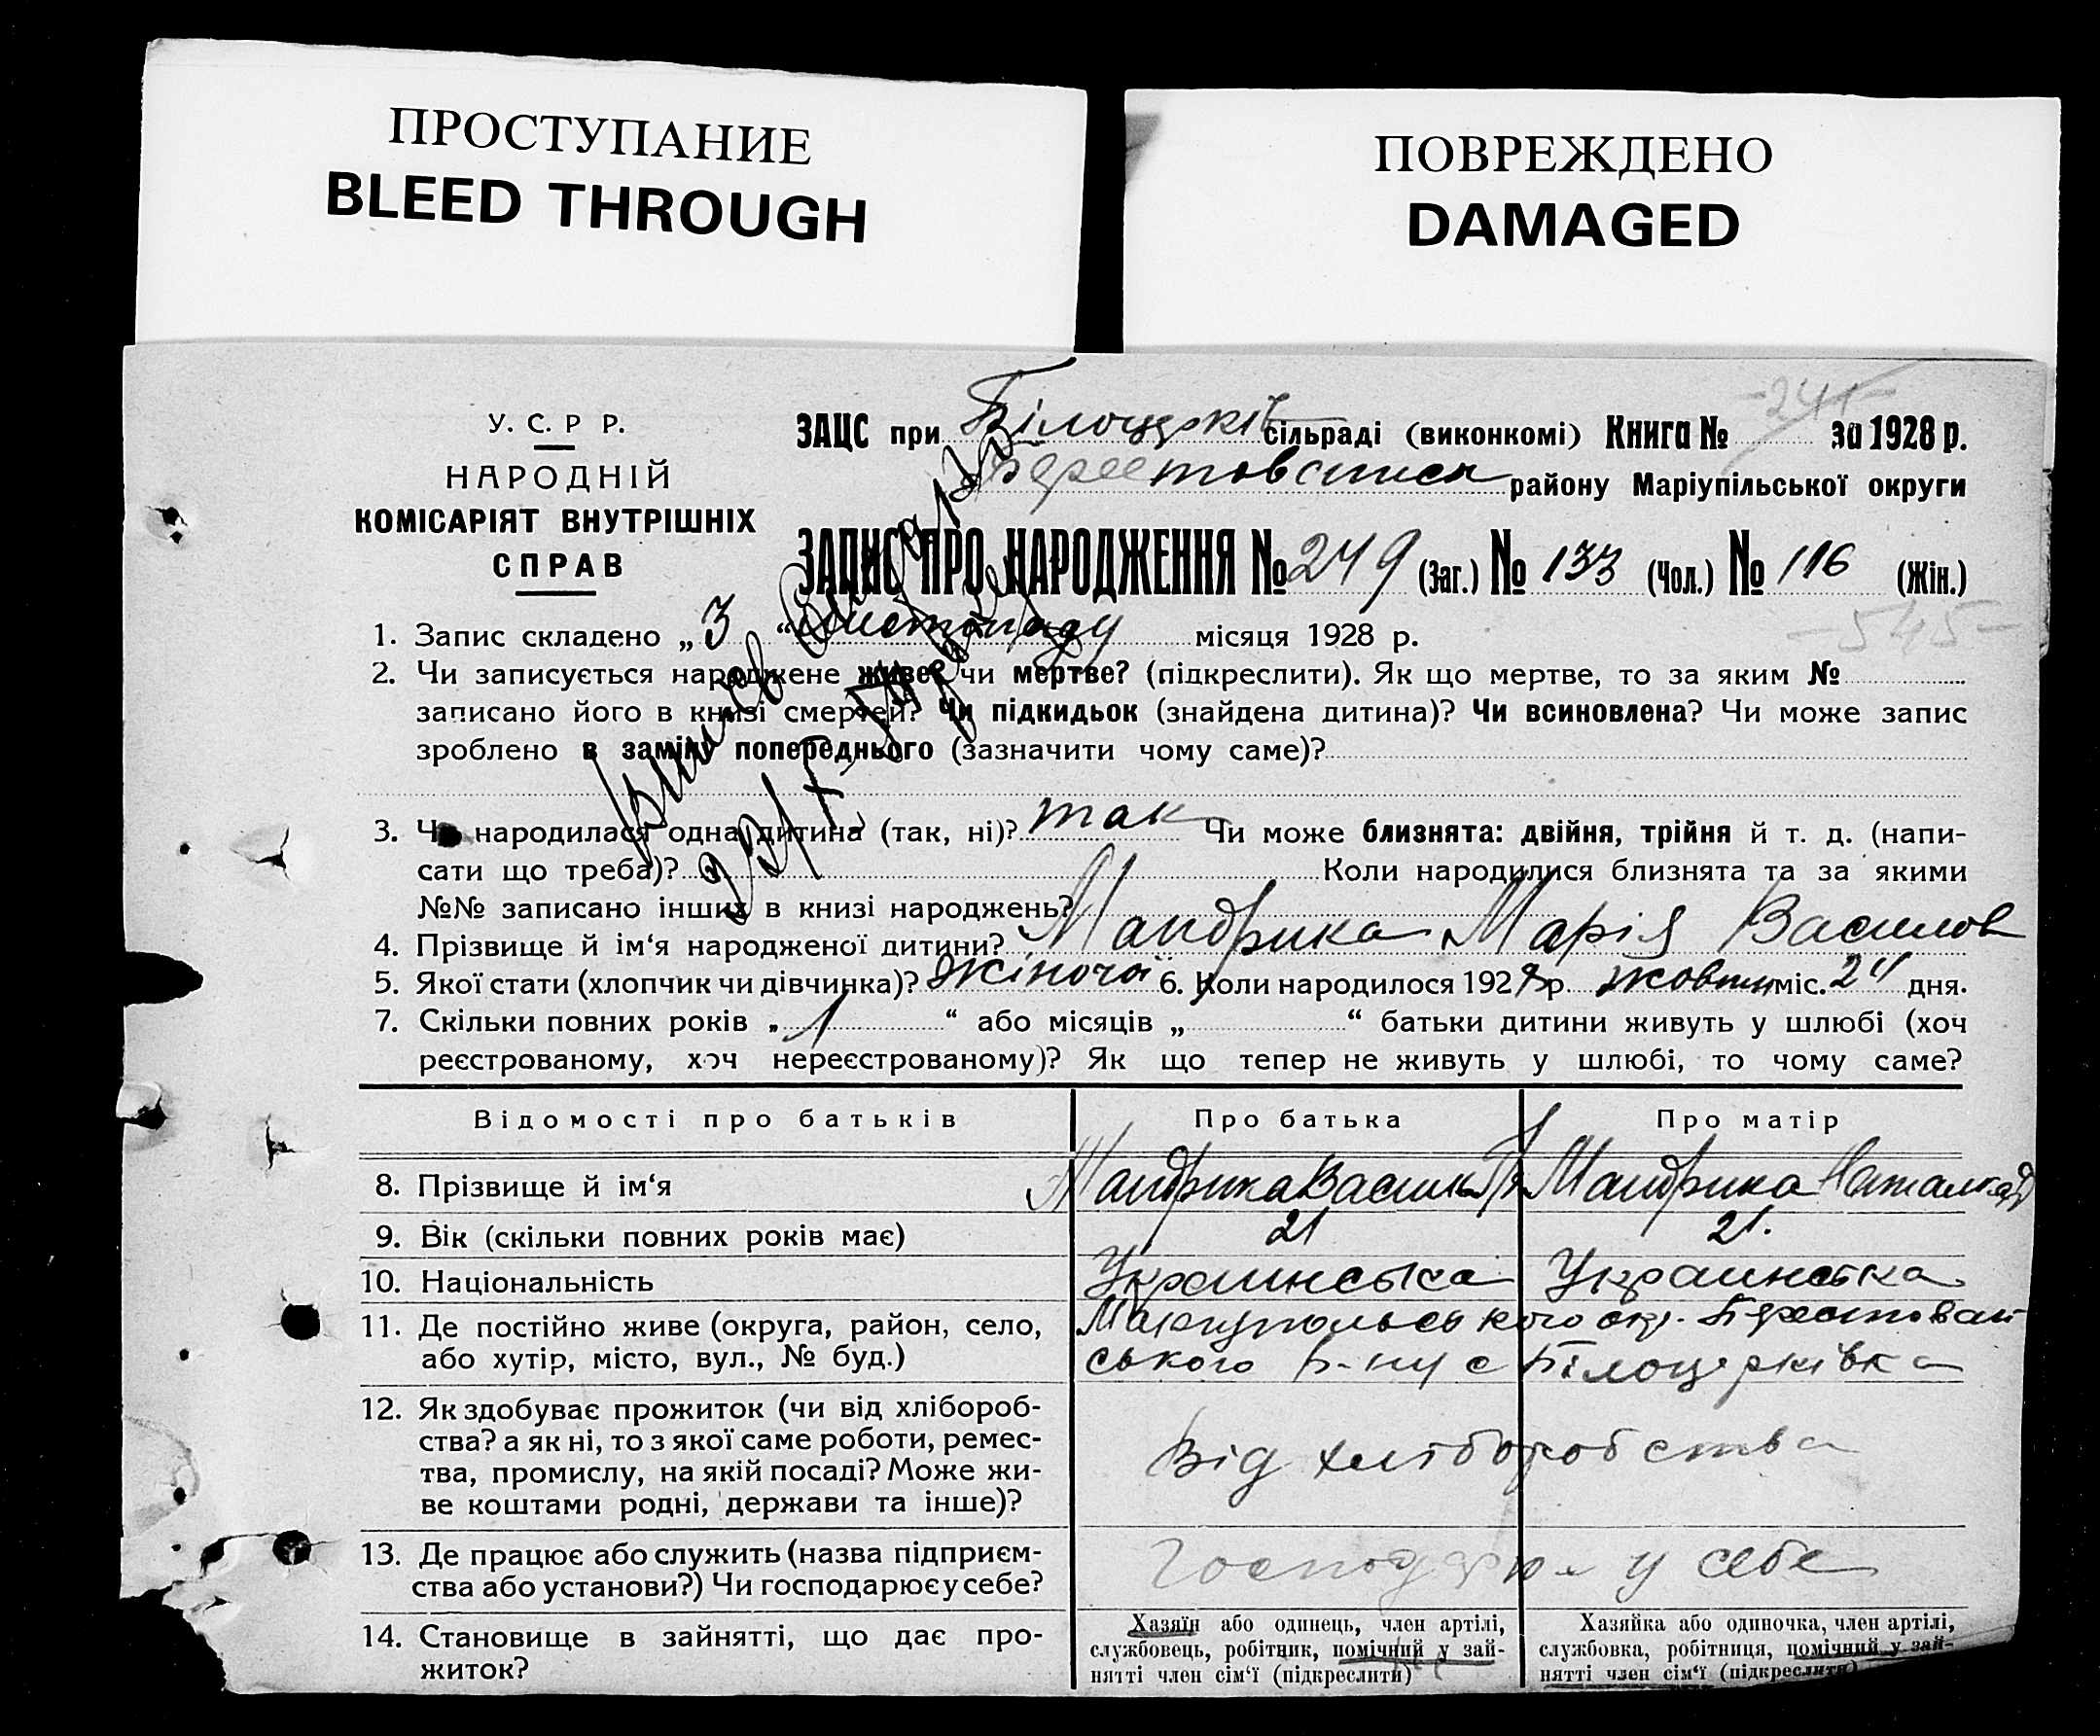 ПРОСТУПАНИЕ
BLEED THROUGH
ПОВРЕЖДЕНО
DAMAGED
-241-
У. С. Р Р.
НАРОДНІЙ
КОМІСАРІЯТ ВНУТРІШНІХ
СПРАВ
ЗАЦС при Білоцерків сільраді (виконкомі) Книга № за 1928 р.
району Маріупільської округи
ЗАПИС ПРО НАРОДЖЕННЯ № 249 (Заг.) № 133 (Чол.) № 116 (Жін.)
-545-
1. Запис складено „ 3 “ листопаду місяця 1928 р.
2. Чи записується народжене живе? чи мертве? (підкреслити). Як що мертве, то за яким №
записано його в книзі смертей? Чи підкидьок (знайдена дитина)? Чи всиновлена? Чи може запис
зроблено в заміну попереднього (зазначити чому саме)?
3. Чи народилася одна дитина (так, ні)? так Чи може близнята: двійня, трійня й т. д. (напи-
сати що треба)? Коли народилися близнята та за якими
№№ записано інших в книзі народжень?
4. Прізвище й ім‘я народженої дитини? Мандрика Марія Василов
5. Якої стати (хлопчик чи дівчинка)? жіночої 6. Коли народилося 1928 р. жовтн міс. 24 дня.
7. Скільки повних років „ 1 “ або місяців „ “ батьки дитини живуть у шлюбі (хоч
реєстрованому, хоч нереєстрованому)? Як що тепер не живуть у шлюбі, то чому саме?
Відомості про батьків Про батька Про матір
8. Прізвище й ім‘я Мандрика Васил Мандрика Наталка
9. Вік (скільки повних років має) 21 21.
10. Національність Украинська Украинська
11. Де постійно живе (округа, район, село, Мариупольського окр.
або хутір, місто, вул., № буд.) ського р-ну с Білоцерківка
12. Як здобуває прожиток (чи від хлібороб-
ства? а як ні, то з якої саме роботи, ремес-
Від хліборобства
тва, промислу, на якій посаді? Може жи-
ве коштами родні, держави та інше)?
13. Де працює або служить (назва підприєм-
ства або установи?) Чи господарює у себе?
Господарюя у себе
14. Становище в зайнятті, що дає про-
житок?
Хазяїн або одинець, член артілі,
службовець, робітник, помічний у зай-
нятті член сім‘ї (підкреслити)
Хазяйка або одиночка, член артілі,
службовка, робітниця, помічний у зай-
нятті член сім‘ї (підкреслити)